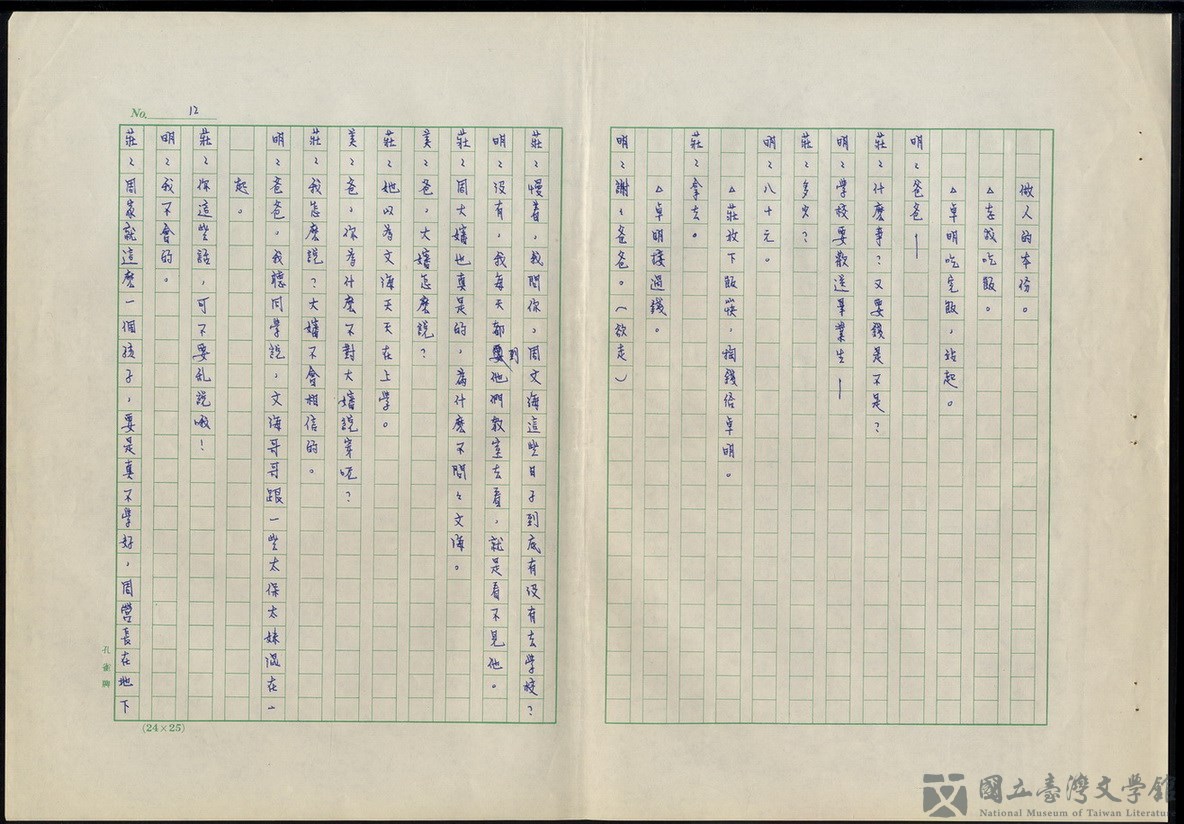 做人的本份。
△志毅吃飯。
△卓明吃完飯，站起。
明：爸爸—
莊：什麼事？又要錢是不是？
明：學校要歡送畢業生—
莊：多少？
明：八十元。
△莊放下飯筷，掏錢給卓明。
莊：拿去。
△卓明接過錢。
明：謝々爸爸。（欲走）
莊：慢着，我問你，周文海這些日子到底有沒有去學校？
明：沒有，我每天都到他們教室去看，就是看不見他。
莊：周大嬸也真是的，為什麼不問々文海。
美：爸，大嬸怎麼說？
莊：她以為文海天天在上學。
美：爸，你為什麼不對大嬸說穿呢？
莊：我怎麼說？大嬸不會相信的。
明：爸爸，我聽同學說，文海哥哥跟一些太保太妹混在一
起。
莊：你這些話，可不要亂說哦！
明：我不會的。
莊：周家就這麼一個孩子，要是真不學好，周營長在地下
No. 12
孔雀牌
(24×25)
國立臺灣文學館
National Museum of Taiwan Literature